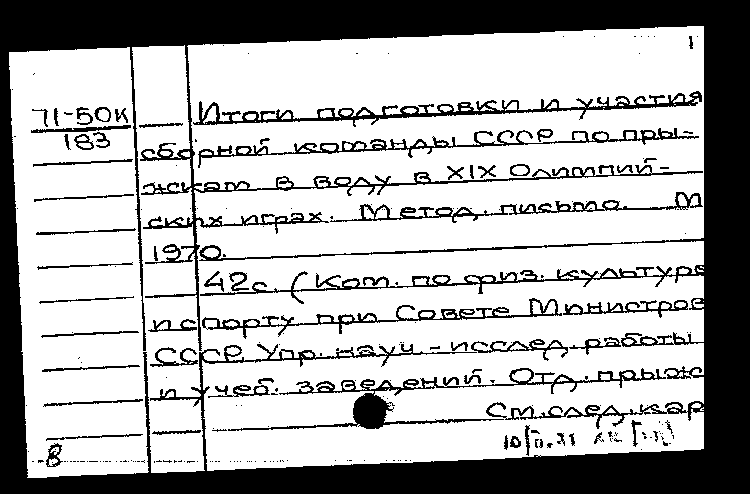 1
71-50к Итоги подготовки и участия
183
сборной команды СССР по пры-
жкам в воду в XIX Олимпий-
ских играх. Метод. письмо. М
1970.
42с. (Ком. по физ. культуре
и спорту при Совете Министров
СССР. Упр. науч-исслед. работы
и учеб. заведений. Отд. прыж
См. след. кар
8